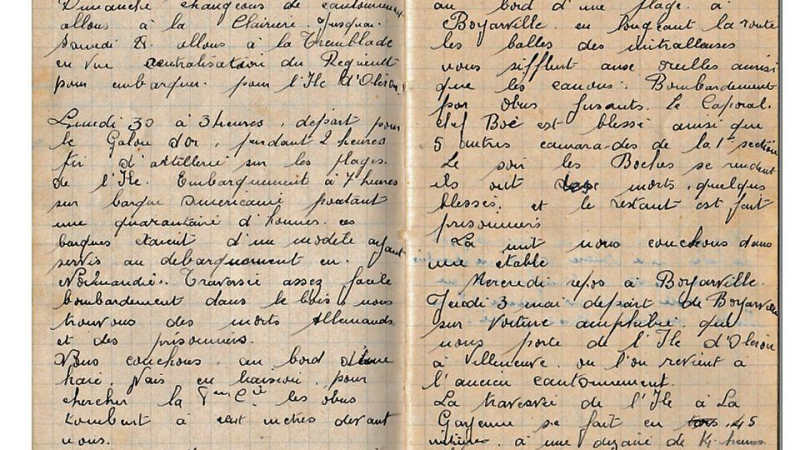 Dimanche changeons de cantonnement
allons à la Clairière. Jusqu'au
Samedi 28. allons à la Tremblade
en vue centralisation du Régiment
pour embarquer. pour l'Ile d'Oléron
Lundi 30 à 3 heures, départ pour
le Galon d'or, pendant 2 heures
tir d'artillerie sur les plages.
de l'Ile. Embarquement à 7 heures
sur barque Américaine portant
une quarantaine d'hommes. ces
barques étaient d'un modèle ayant
servis au débarquement en.
Normandie. Traversée assez facile
bombardement dans le bois, nous
trouvons des morts Allemands
et des prisonniers.
Nous couchons au bord d'une
haie. Vais en liaison pour
chercher la Cie les obus
tombent à cent mètres devant
nous.
au bord d'une plage. à
Boyarville. en longeant la route
les balles des mitrailleuses
nous sifflent aux oreilles ainsi
que les canons. Bombardement
par obus fusants. Le Caporal
chef Boé est blessé ainsi que
5 autres camarades de la 1e section
Le soir les Boches se rendent
ils ont morts, quelques
blessés. et le restant est fait
prisonniers
La nuit nous couchons dans
une étable
Mercredi repos à Boyarville.
Jeudi 3 mai départ de Boyarville
sur voiture amphibie. qui
nous porte de l'Ile d'Oléron
à villeneuve. ou l'on revient à
l'ancien cantonnement.
La traversée de l'Ile à La
Gazenne se fait en 45
minutes. à une dizaine de K. heures